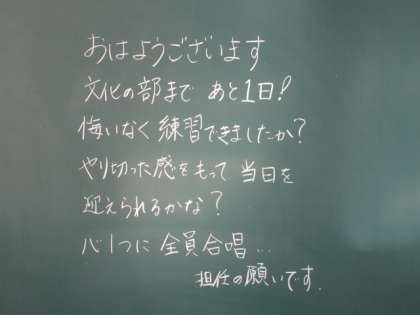 おはようございます
文化の部まで あと1日!
悔いなく練習できましたか?
やり切った感をもって 当日を
迎えられるかな?
心1つに 全員合唱…
担任の願いです.